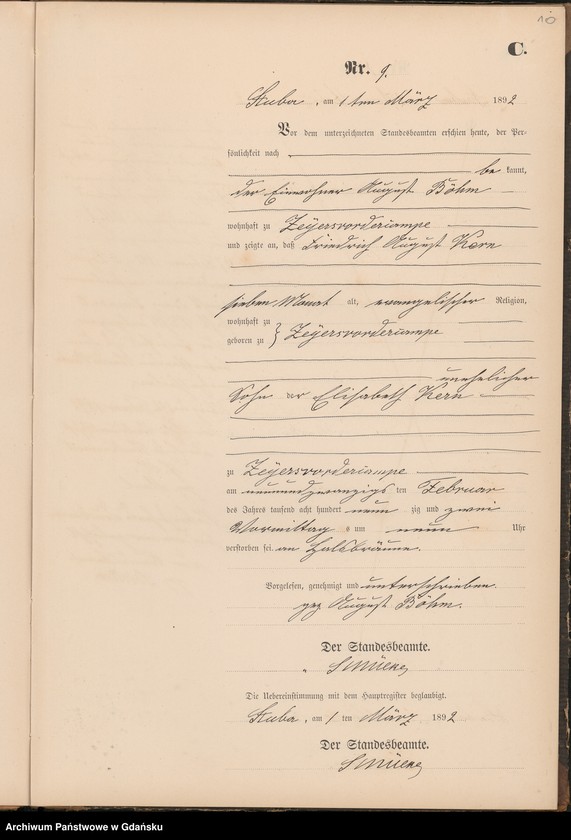 10
C.
Nr. 9.
Stuba, am 1 ten März 1892
Vor dem unterzeichneten Standesbeamten erschien heute, der Per-
sönlichkeit nach
be kannt,
der Einwohner August Böhm
wohnhaft zu Zeyersvordercampe
und zeigte an, daß Friedrich August Kern
sieben Monat alt, evangelischer Religion,
wohnhaft zu
geboren zu } Zeyersvordercampe
unehelicher
Sohn der Elisabeth Kern
zu Zeyersvordercampe
am neunundzwanzigs ten Februar
des Jahres tausend acht hundert neun zig und zwei
Vormittag s um neun Uhr
verstorben sei. an Halsbräune.
Vorgelesen, genehmigt und unterschrieben.
gez August Böhm.
Der Standesbeamte.
Die Uebereinstimmung mit dem Hauptregister beglaubigt.
Stuba, am 1 ten März 1892
Der Standesbeamte.
Archiwum Państwowe w Gdańsku